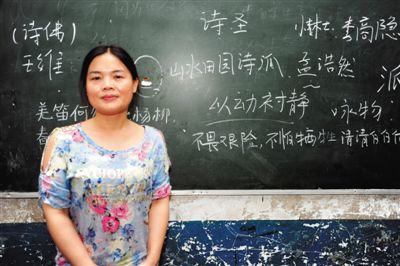 (诗佛) 诗圣 小李杜 李商隐
王维 山水田园诗派 孟浩然 派
羌笛何 杨柳 以动衬静 咏物
春 不畏艰险,不怕牺牲 清清白白